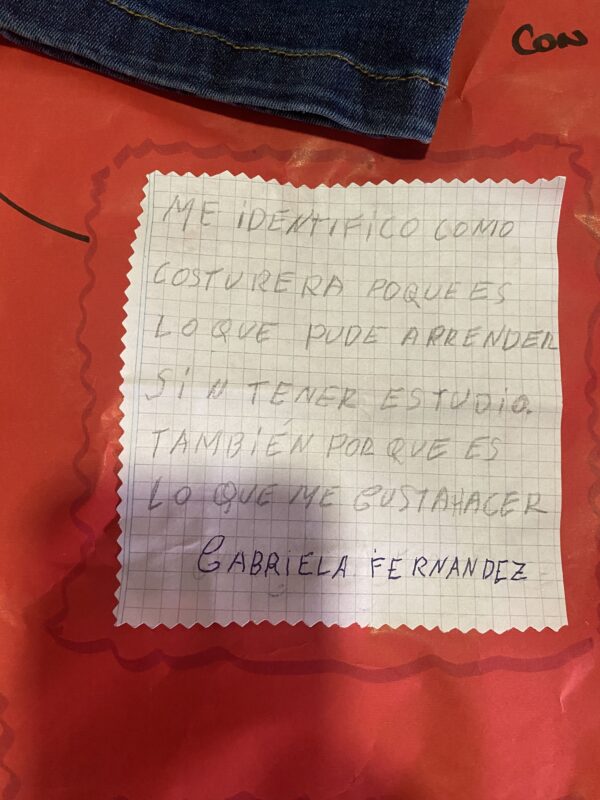 CON
ME iDENTiFiCO COMO
COSTURERA POQUE ES
LO QUE PUDE ARRENDER
Si N TENER ESTUDiO.
TAMBiÉN POR QUE ES
LO QUE ME GUSTA HACER
GABRiELA FERNANDEZ